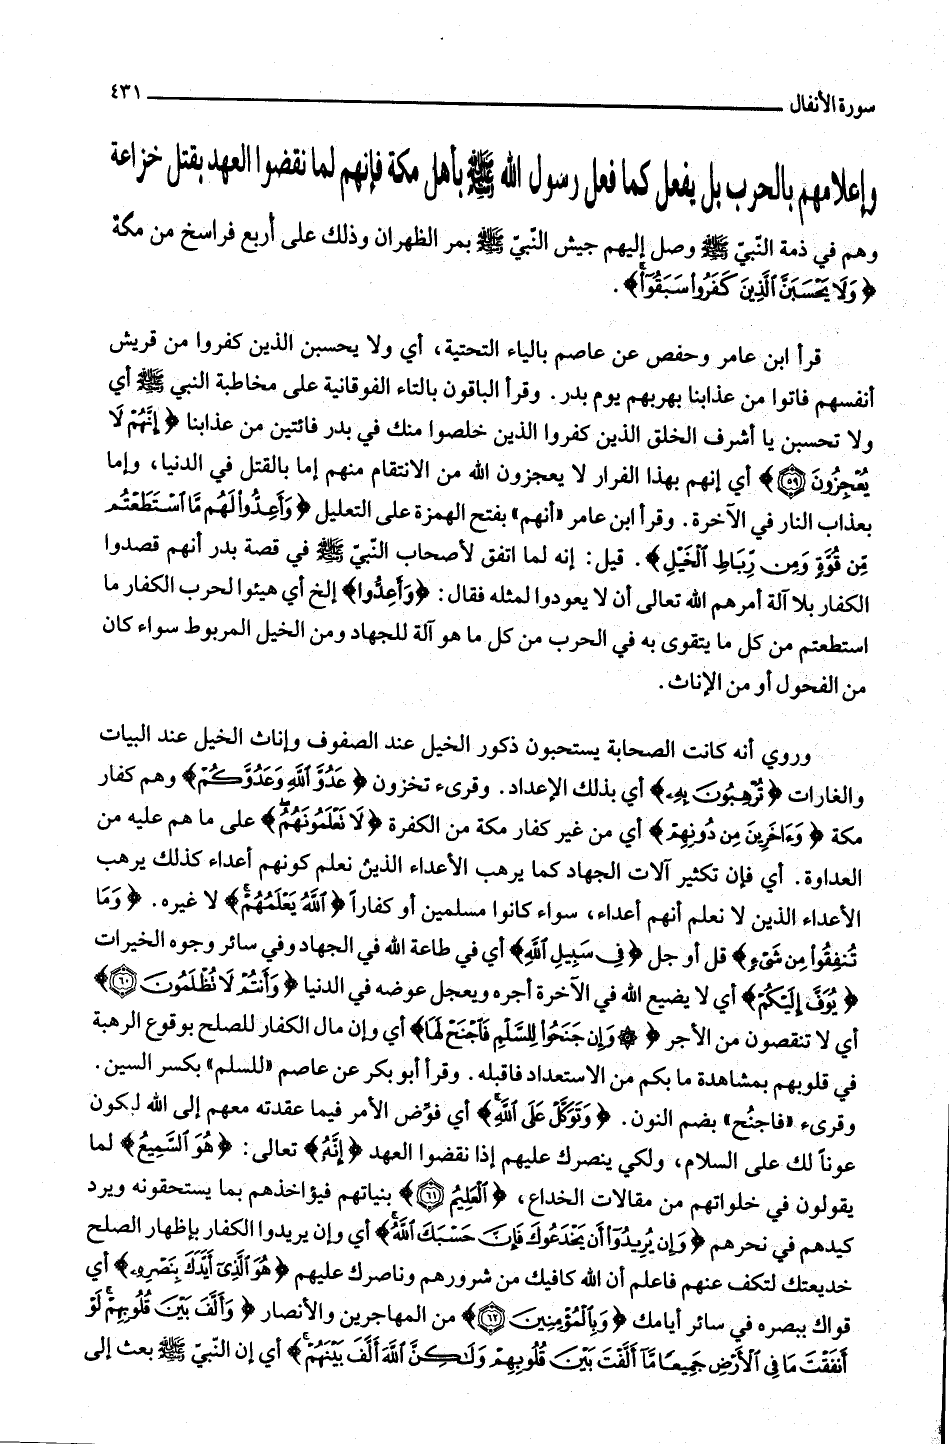 سورة الأنفال ٤٣١
وإعلامهم بالحرب بل يفعل كما فعل رسول الله ﷺ بأهل مكة فإنهم لما نقضوا العهد بقتل خزاعة
وهم في ذمة النّبيّ ﷺ وصل إليهم جيش النّبيّ ﷺ بمر الظهران وذلك على أربع فراسخ من مكة
﴿ وَلَا يَحْسَبَنَّ ٱلَّذِينَ كَفَرُوا۟ سَبَقُوٓا۟ۚ ﴾ .
قرأ ابن عامر وحفص عن عاصم بالياء التحتية، أي ولا يحسبن الذين كفروا من قريش
أنفسهم فاتوا من عذابنا بهربهم يوم بدر. وقرأ الباقون بالتاء الفوقانية على مخاطبة النبي ﷺ أي
ولا تحسبن يا أشرف الخلق الذين كفروا الذين خلصوا منك في بدر فائتين من عذابنا ﴿ إِنَّهُمْ لَا
يُعْجِزُونَ ٥٩ ﴾ أي إنهم بهذا الفرار لا يعجزون الله من الانتقام منهم إما بالقتل في الدنيا، وإما
بعذاب النار في الآخرة. وقرأ ابن عامر «أنهم» بفتح الهمزة على التعليل ﴿ وَأَعِدُّوا۟ لَهُم مَّا ٱسْتَطَعْتُم
مِّن قُوَّةٍ وَمِن رِّبَاطِ ٱلْخَيْلِ ﴾ . قيل: إنه لما اتفق لأصحاب النّبيّ ﷺ في قصة بدر أنهم قصدوا
الكفار بلا آلة أمرهم الله تعالى أن لا يعودوا لمثله فقال: ﴿ وَأَعِدُّوا۟ ﴾ إلخ أي هيئوا لحرب الكفار ما
استطعتم من كل ما يتقوى به في الحرب من كل ما هو آلة للجهاد ومن الخيل المربوط سواء كان
من الفحول أو من الإناث.
وروي أنه كانت الصحابة يستحبون ذكور الخيل عند الصفوف وإناث الخيل عند البيات
والغارات ﴿ تُرْهِبُونَ بِهِۦ ﴾ أي بذلك الإعداد. وقرىء تخزون ﴿ عَدُوَّ ٱللَّهِ وَعَدُوَّكُمْ ﴾ وهم كفار
مكة ﴿ وَءَاخَرِينَ مِن دُونِهِمْ ﴾ أي من غير كفار مكة من الكفرة ﴿ لَا تَعْلَمُونَهُمُ ﴾ على ما هم عليه من
العداوة. أي فإن تكثير آلات الجهاد كما يرهب الأعداء الذين نعلم كونهم أعداء كذلك يرهب
الأعداء الذين لا نعلم أنهم أعداء، سواء كانوا مسلمين أو كفاراً ﴿ ٱللَّهُ يَعْلَمُهُمْۚ ﴾ لا غيره. ﴿ وَمَا
تُنفِقُوا۟ مِن شَىْءٍ ﴾ قل أو جل ﴿ فِى سَبِيلِ ٱللَّهِ ﴾ أي في طاعة الله في الجهاد وفي سائر وجوه الخيرات
﴿ يُوَفَّ إِلَيْكُمْ ﴾ أي لا يضيع الله في الآخرة أجره ويعجل عوضه في الدنيا ﴿ وَأَنتُمْ لَا تُظْلَمُونَ ٦٠ ﴾
أي لا تنقصون من الأجر ﴿ ۞ وَإِن جَنَحُوا۟ لِلسَّلْمِ فَٱجْنَحْ لَهَا ﴾ أي وإن مال الكفار للصلح بوقوع الرهبة
في قلوبهم بمشاهدة ما بكم من الاستعداد فاقبله. وقرأ أبو بكر عن عاصم «للسلم» بكسر السين.
وقرىء «فاجنُح» بضم النون. ﴿ وَتَوَكَّلْ عَلَى ٱللَّهِۚ ﴾ أي فوّض الأمر فيما عقدته معهم إلى الله ليكون
عوناً لك على السلام، ولكي ينصرك عليهم إذا نقضوا العهد ﴿ إِنَّهُۥ ﴾ تعالى: ﴿ هُوَ ٱلسَّمِيعُ ﴾ لما
يقولون في خلواتهم من مقالات الخداع، ﴿ ٱلْعَلِيمُ ٦١ ﴾ بنياتهم فيؤاخذهم بما يستحقونه ويرد
كيدهم في نحرهم ﴿ وَإِن يُرِيدُوٓا۟ أَن يَخْدَعُوكَ فَإِنَّ حَسْبَكَ ٱللَّهُۚ ﴾ أي وإن يريدوا الكفار بإظهار الصلح
خديعتك لتكف عنهم فاعلم أن الله كافيك من شرورهم وناصرك عليهم ﴿ هُوَ ٱلَّذِىٓ أَيَّدَكَ بِنَصْرِهِۦ ﴾ أي
قواك ببصره في سائر أيامك ﴿ وَبِٱلْمُؤْمِنِينَ ٦٢ ﴾ من المهاجرين والأنصار ﴿ وَأَلَّفَ بَيْنَ قُلُوبِهِمْۚ لَوْ
أَنفَقْتَ مَا فِى ٱلْأَرْضِ جَمِيعًا مَّآ أَلَّفْتَ بَيْنَ قُلُوبِهِمْ وَلَٰكِنَّ ٱللَّهَ أَلَّفَ بَيْنَهُمْۚ ﴾ أي إن النّبيّ ﷺ بعث إلى